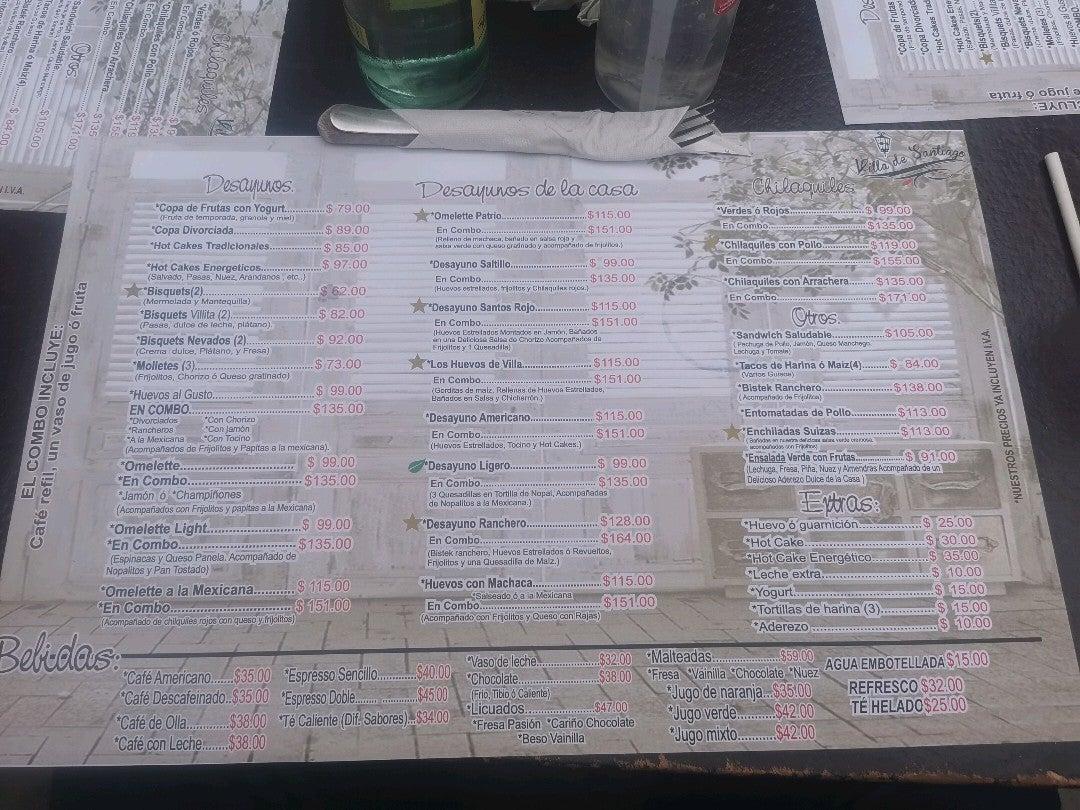 Villa de Santiago
EL COMBO INCLUYE:
Café refil, un vaso de jugo ó fruta
Desayunos
*Copa de Frutas con Yogurt............$ 79.00
(Fruta de temporada, granola y miel)
*Copa Divorciada..................$ 89.00
*Hot Cakes Tradicionales..............$ 85.00
*Hot Cakes Energeticos................$ 97.00
(Salvado, Pasas, Nuez, Arandanos, etc..)
*Bisquets(2)..................$ 62.00
(Mermelada y Mantequilla)
*Bisquets Villita (2)..................$ 82.00
(Pasas, dulce de leche, plátano).
*Bisquets Nevados (2)..............$ 92.00
(Crema dulce, Plátano, y Fresa)
*Molletes (3)..................$ 73.00
(Frijolitos, Chorizo ó Queso gratinado)
*Huevos al Gusto..................$ 99.00
EN COMBO..................$135.00
*Divorciados *Con Chorizo
*Rancheros *Con Jamón
*A la Mexicana *Con Tocino
(Acompañados de Frijolitos y Papitas a la mexicana).
*Omelette..................$ 99.00
*En Combo..................$135.00
*Jamón ó *Champiñones
(Acompañados con Frijolitos y papitas a la Mexicana)
*Omelette Light..................$ 99.00
*En Combo..................$135.00
(Espinacas y Queso Panela, Acompañado de
Nopalitos y Pan Tostado)
*Omelette a la Mexicana..........$ 115.00
*En Combo..................$ 151.00
(Acompañado de chilquiles rojos con queso y frijolitos)
Desayunos de la casa
*Omelette Patrio..................$115.00
En Combo..................$151.00
(Relleno de machaca, bañado en salsa roja y
salsa verde con queso gratinado y acompañado de frijolitos.)
*Desayuno Saltillo..................$ 99.00
En Combo..................$135.00
(Huevos estrellados, frijolitos y Chilaquiles rojos.)
*Desayuno Santos Rojo..............$115.00
En Combo..................$151.00
(Huevos Estrellados Montados en Jamón, Bañados
en una Deliciosa Salsa de Chorizo Acompañados de
Frijolitos y 1 Quesadilla)
*Los Huevos de Villa..................$115.00
En Combo..................$151.00
(Gorditas de maíz, Rellenas de Huevos Estrellados,
Bañados en Salsa y Chicharrón.)
*Desayuno Americano..............$115.00
En Combo..................$151.00
(Huevos Estrellados, Tocino y Hot Cakes.)
*Desayuno Ligero..................$ 99.00
En Combo..................$135.00
(3 Quesadillas en Tortilla de Nopal, Acompañadas
de Nopalitos a la Mexicana.)
*Desayuno Ranchero..............$128.00
En Combo..................$164.00
(Bistek ranchero, Huevos Estrellados ó Revueltos,
Frijolitos y una Quesadilla de Maíz.)
*Huevos con Machaca..............$115.00
*Salseado ó a la Mexicana
En Combo..................$151.00
(Acompañado con Frijolitos y Queso con Rajas)
Chilaquiles
*Verdes ó Rojos..................$ 99.00
En Combo..................$135.00
*Chilaquiles con Pollo..............$119.00
En Combo..................$155.00
*Chilaquiles con Arrachera........$135.00
En Combo..................$171.00
Otros.
*Sandwich Saludable..............$105.00
( Pechuga de Pollo, Jamón, Queso Manchego,
Lechuga y Tomate)
*Tacos de Harina ó Maiz(4)........$ 84.00
(Varios Guisos)
*Bistek Ranchero..................$138.00
( Acompañado de Frijolitos)
*Entomatadas de Pollo..............$113.00
*Enchiladas Suizas..................$113.00
(Bañadas en nuestra deliciosa salsa verde cremosa,
acompañados con Frijolitos)
*Ensalada Verde con Frutas........$ 91.00
(Lechuga, Fresa, Piña, Nuez y Almendras Acompañado de un
Delicioso Aderezo Dulce de la Casa )
Extras:
*Huevo ó guarnición..................$ 25.00
*Hot Cake..................$ 30.00
*Hot Cake Energético..............$ 35.00
*Leche extra..................$ 10.00
*Yogurt..................$ 15.00
*Tortillas de harina (3)..............$ 15.00
*Aderezo..................$ 10.00
*NUESTROS PRECIOS YA INCLUYEN I.V.A.
Bebidas:
*Café Americano......$35.00
*Café Descafeinado..$35.00
*Café de Olla..........$38.00
*Café con Leche.......$38.00
*Espresso Sencillo..........$40.00
*Espresso Doble..........$45.00
*Té Caliente (Dif. Sabores)...$34.00
*Vaso de leche..............$32.00
*Chocolate..................$38.00
(Frio, Tibio ó Caliente)
*Licuados..................$47.00
*Fresa Pasión *Cariño Chocolate
*Beso Vainilla
*Malteadas..................$59.00
*Fresa *Vainilla *Chocolate *Nuez
*Jugo de naranja...$35.00
*Jugo verde..........$42.00
*Jugo mixto..........$42.00
AGUA EMBOTELLADA $15.00
REFRESCO $32.00
TÉ HELADO $25.00